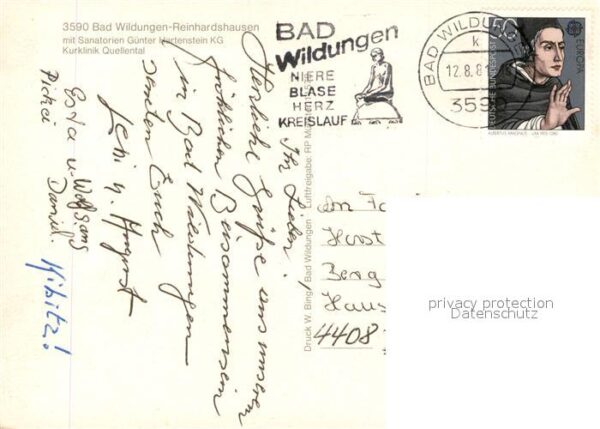 3590 Bad Wildungen-Reinhardshausen
mit Sanatorien Günter Hartenstein KG
Kurklinik Quellental
BAD
Wildungen
NIERE
BLASE
HERZ
KREISLAUF
BAD WILDUNG
k
12.8.81
3590
EUROPA
DEUTSCHE BUNDESPOST
ALBERTUS MAGNUS
Ihr Lieben!
Herzliche Grüße aus unserem
fröhlichen Beisammensein
in Bad Wildungen
senden Euch
Leni u. August
u. Wolfgang
Daniel.
Kibitz!
Druck W. Bing, Bad Wildungen Luftfreigabe: RP
Horst
Berg
Haus
4408
privacy protection
Datenschutz